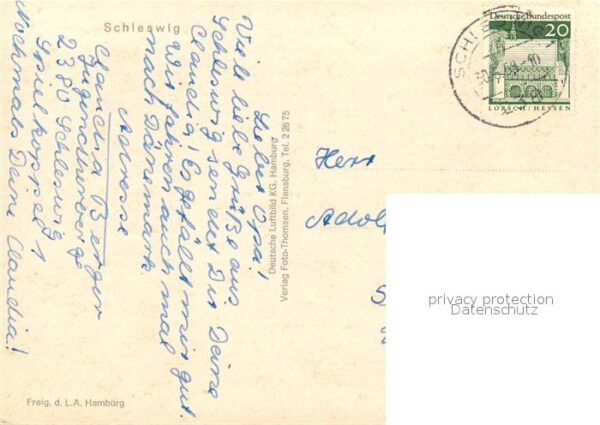 Schleswig
Lieber Opa!
Viele liebe Grüße aus
Schleswig sendet Dir Deine
Claudia! Es gefällt mir gut.
Wir fahren auch mal
nach Dänemark.
Adresse
Claudia Berger
Jugendherberge
2380 Schleswig
Spielkoppel 1
Nochmals Deine Claudia!
Freig. d. L.A. Hamburg
Deutsche Luftbild KG. Hamburg
Verlag Foto-Thomsen, Flensburg, Tel. 2 26 75
Deutsche Bundespost
20
LORSCH/HESSEN
SCHLESWIG
Herr
Adol
privacy protection
Datenschutz